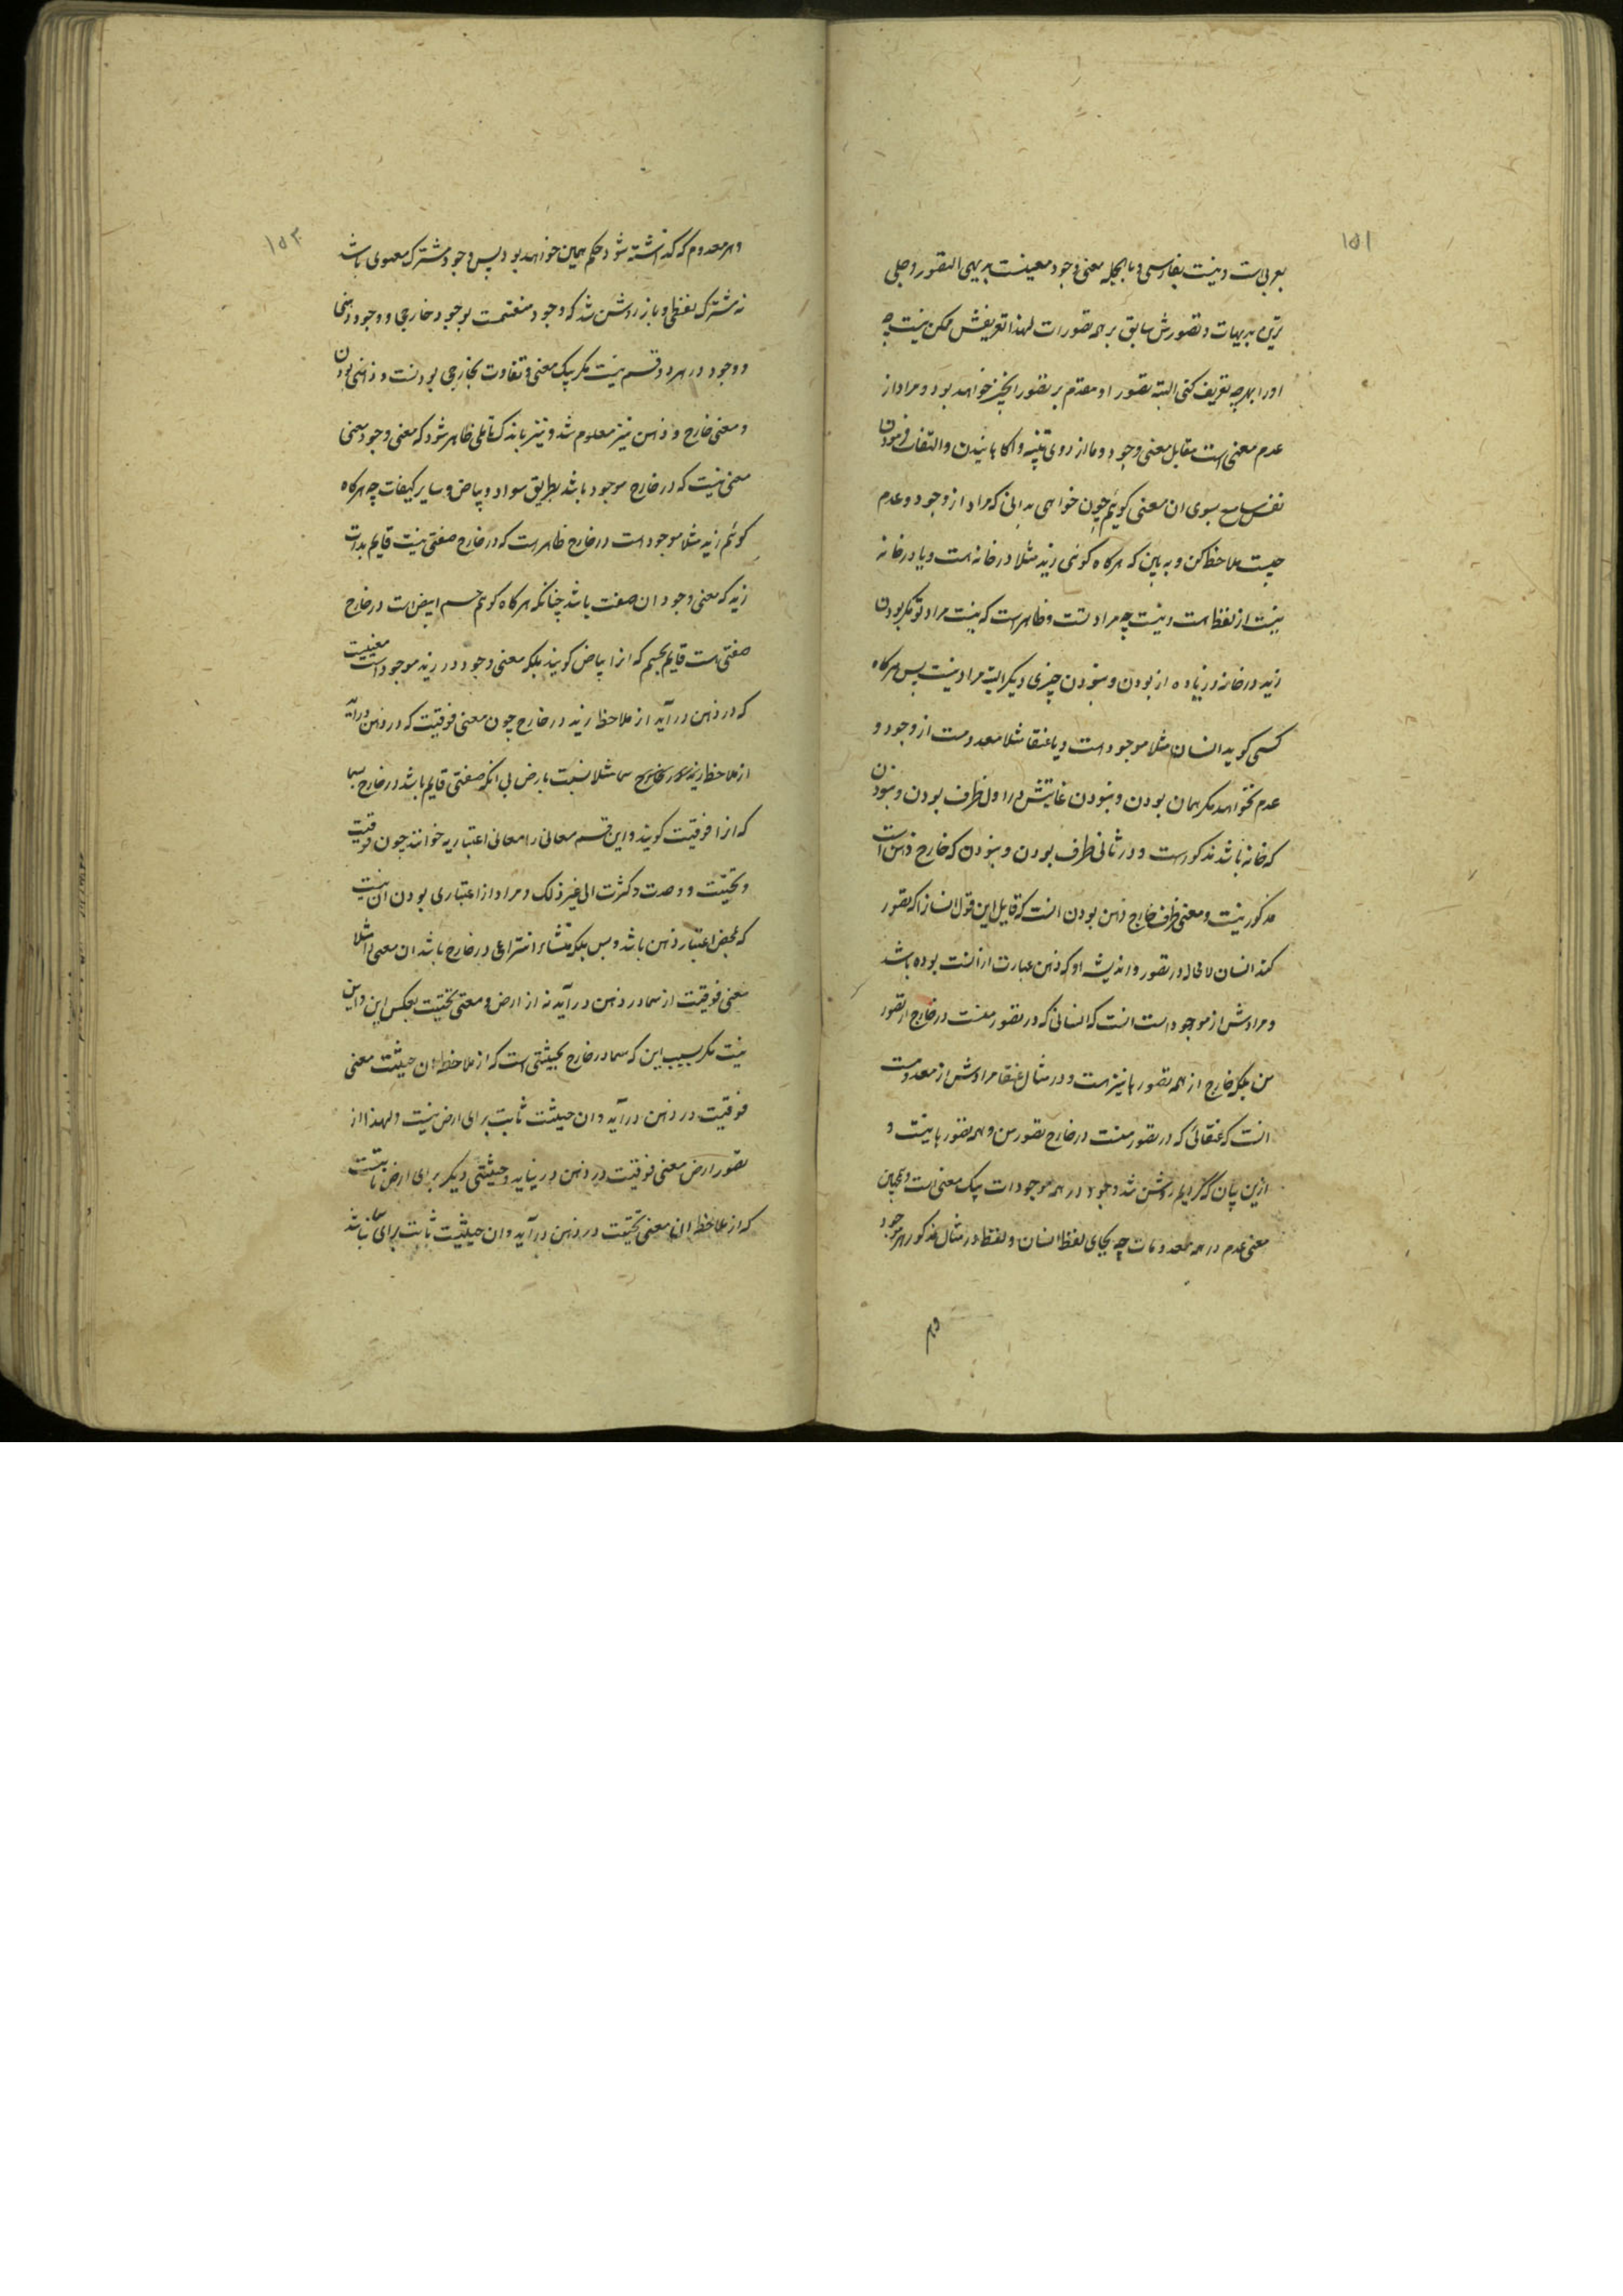 ۱۵۱
بعربی است و نیست بفارسی و بالجمله معنی وجود معنیست بدیهی التصور و جلی
ترین بدیهیات و تصورش سابق بر همه تصورات لهذا تعریفش ممکن نیست چه
اورا بهرچه تعریف کنی البته تصور او مقدم بر تصور انچیز خواهد بود و مراد از
عدم معنی است مقابل معنی وجود و ما از روی تنبیه و اکاهانیدن و التفات فرمودن
نفس سامع بسوی ان معنی کوئیم چون خواهی بدانی که مراد از وجود و عدم
چیست ملاحظه کن و به بین که هرکاه کوئی زید مثلا در خانه است و یا در خانه
نیست از لفظ است و نیست چه مراد تست و ظاهر است که نیست مراد تو مکر بودن
زید در خانه و زیاده از بودن و نبودن چیزی دیکر البته مراد نیست پس هرکاه
کسی کوید انسان مثلا موجود است و یا عنقا مثلا معدومست از وجود و
عدم نخواهد مکر همان بودن و نبودن غایتش در اول ظرف بودن و نبودن
که خانه باشد مذکورست و در ثانی ظرف بودن و نبودن که خارج ذهن است
مذکور نیست و معنی ظرف خارج ذهن بودن انست که قایل این قول انسان را که تصور
کند انسان لامحاله در تصور و اندیشه او که ذهن عبارت از انست بوده باشد
و مرادش از موجود است انست که انسانی که در تصور منست در خارج از تصور
من بلکه خارج از همه تصورها نیز است و در مثال عنقا مرادش از معدومست
انست که عنقائی که در تصور منست در خارج تصور من و همه تصورها نیست و
ازین بیان که کردیم روشن شد وجود در همه موجودات یک معنی است و همچنین
معنی عدم در همه معدومات چه بجای لفظ انسان و لفظ در مثال مذکور هر موجود
وهر
۱۵۲
و هر معدوم که کذاشته شود حکم همین خواهد بود پس وجود مشترک معنوی باشد
نه مشترک لفظی و باز روشن شد که وجود منقسمست بوجود خارجی و وجود ذهنی
و وجود در هر دو قسم نیست مکر یک معنی و تفاوت بخارجی بودنست و ذهنی بودن
و معنی خارج و ذهن نیز معلوم شد و نیز باندک تاملی ظاهر شود که معنی وجود معنی
معنی نیست که در خارج موجود باشد بطریق سواد و بیاض و سایر کیفیات چه هرکاه
کوئیم زید مثلا موجود است در خارج ظاهر است که در خارج صفتی نیست قایم بذات
زید که معنی وجود ان صفت باشد چنانکه هرکاه کوئیم جسم ابیض است در خارج
صفتی هست قایم بجسم که انرا بیاض کویند بلکه معنی وجود در زید موجود است معنییست
که در ذهن در آید از ملاحظه زید در خارج چون معنی فوقیت که در ذهن درآید
از ملاحظه سما مثلا نسبت بارض بی انکه صفتی قایم باشد در خارج بسما
که انرا فوقیت کویند و این قسم معانی را معانی اعتباریه خوانند چون فوقیت
و تحتیت و وحدت و کثرت الی غیر ذلک و مراد از اعتباری بودن ان نیست
که بمحض اعتبار ذهن باشد و بس بلکه منشاء انتزاعی در خارج باشد ان معنی را مثلا
معنی فوقیت از سما در ذهن در آید نه از ارض و معنی تحتیت بعکس این و این
نیست مکر بسبب این که سما در خارج بحیثیتی است که از ملاحظه ان حیثیت معنی
فوقیت در ذهن در آید و ان حیثیت ثابت برای ارض نیست و لهذا از
تصور ارض معنی فوقیت در ذهن در نیاید و حیثیتی دیکر برای ارض ثابتست
که از ملاحظه ان معنی تحتیت در ذهن در آید و ان حیثیت ثابت برای سما نباشد